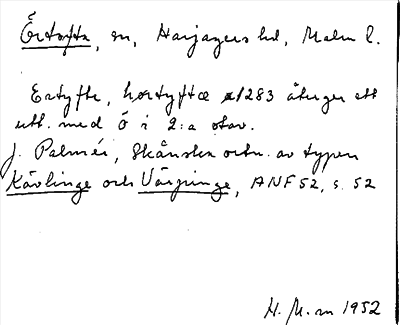 Örtofta, sn, Harjagers hd, Malm l.
Ertyfte, hortyftæ 1283 återger ett
utt. med ö i 2:a stav.
J. Palmér, Skånska ortn. av typen
Kävlinge och Värpinge, ANF 52, s. 52
1952